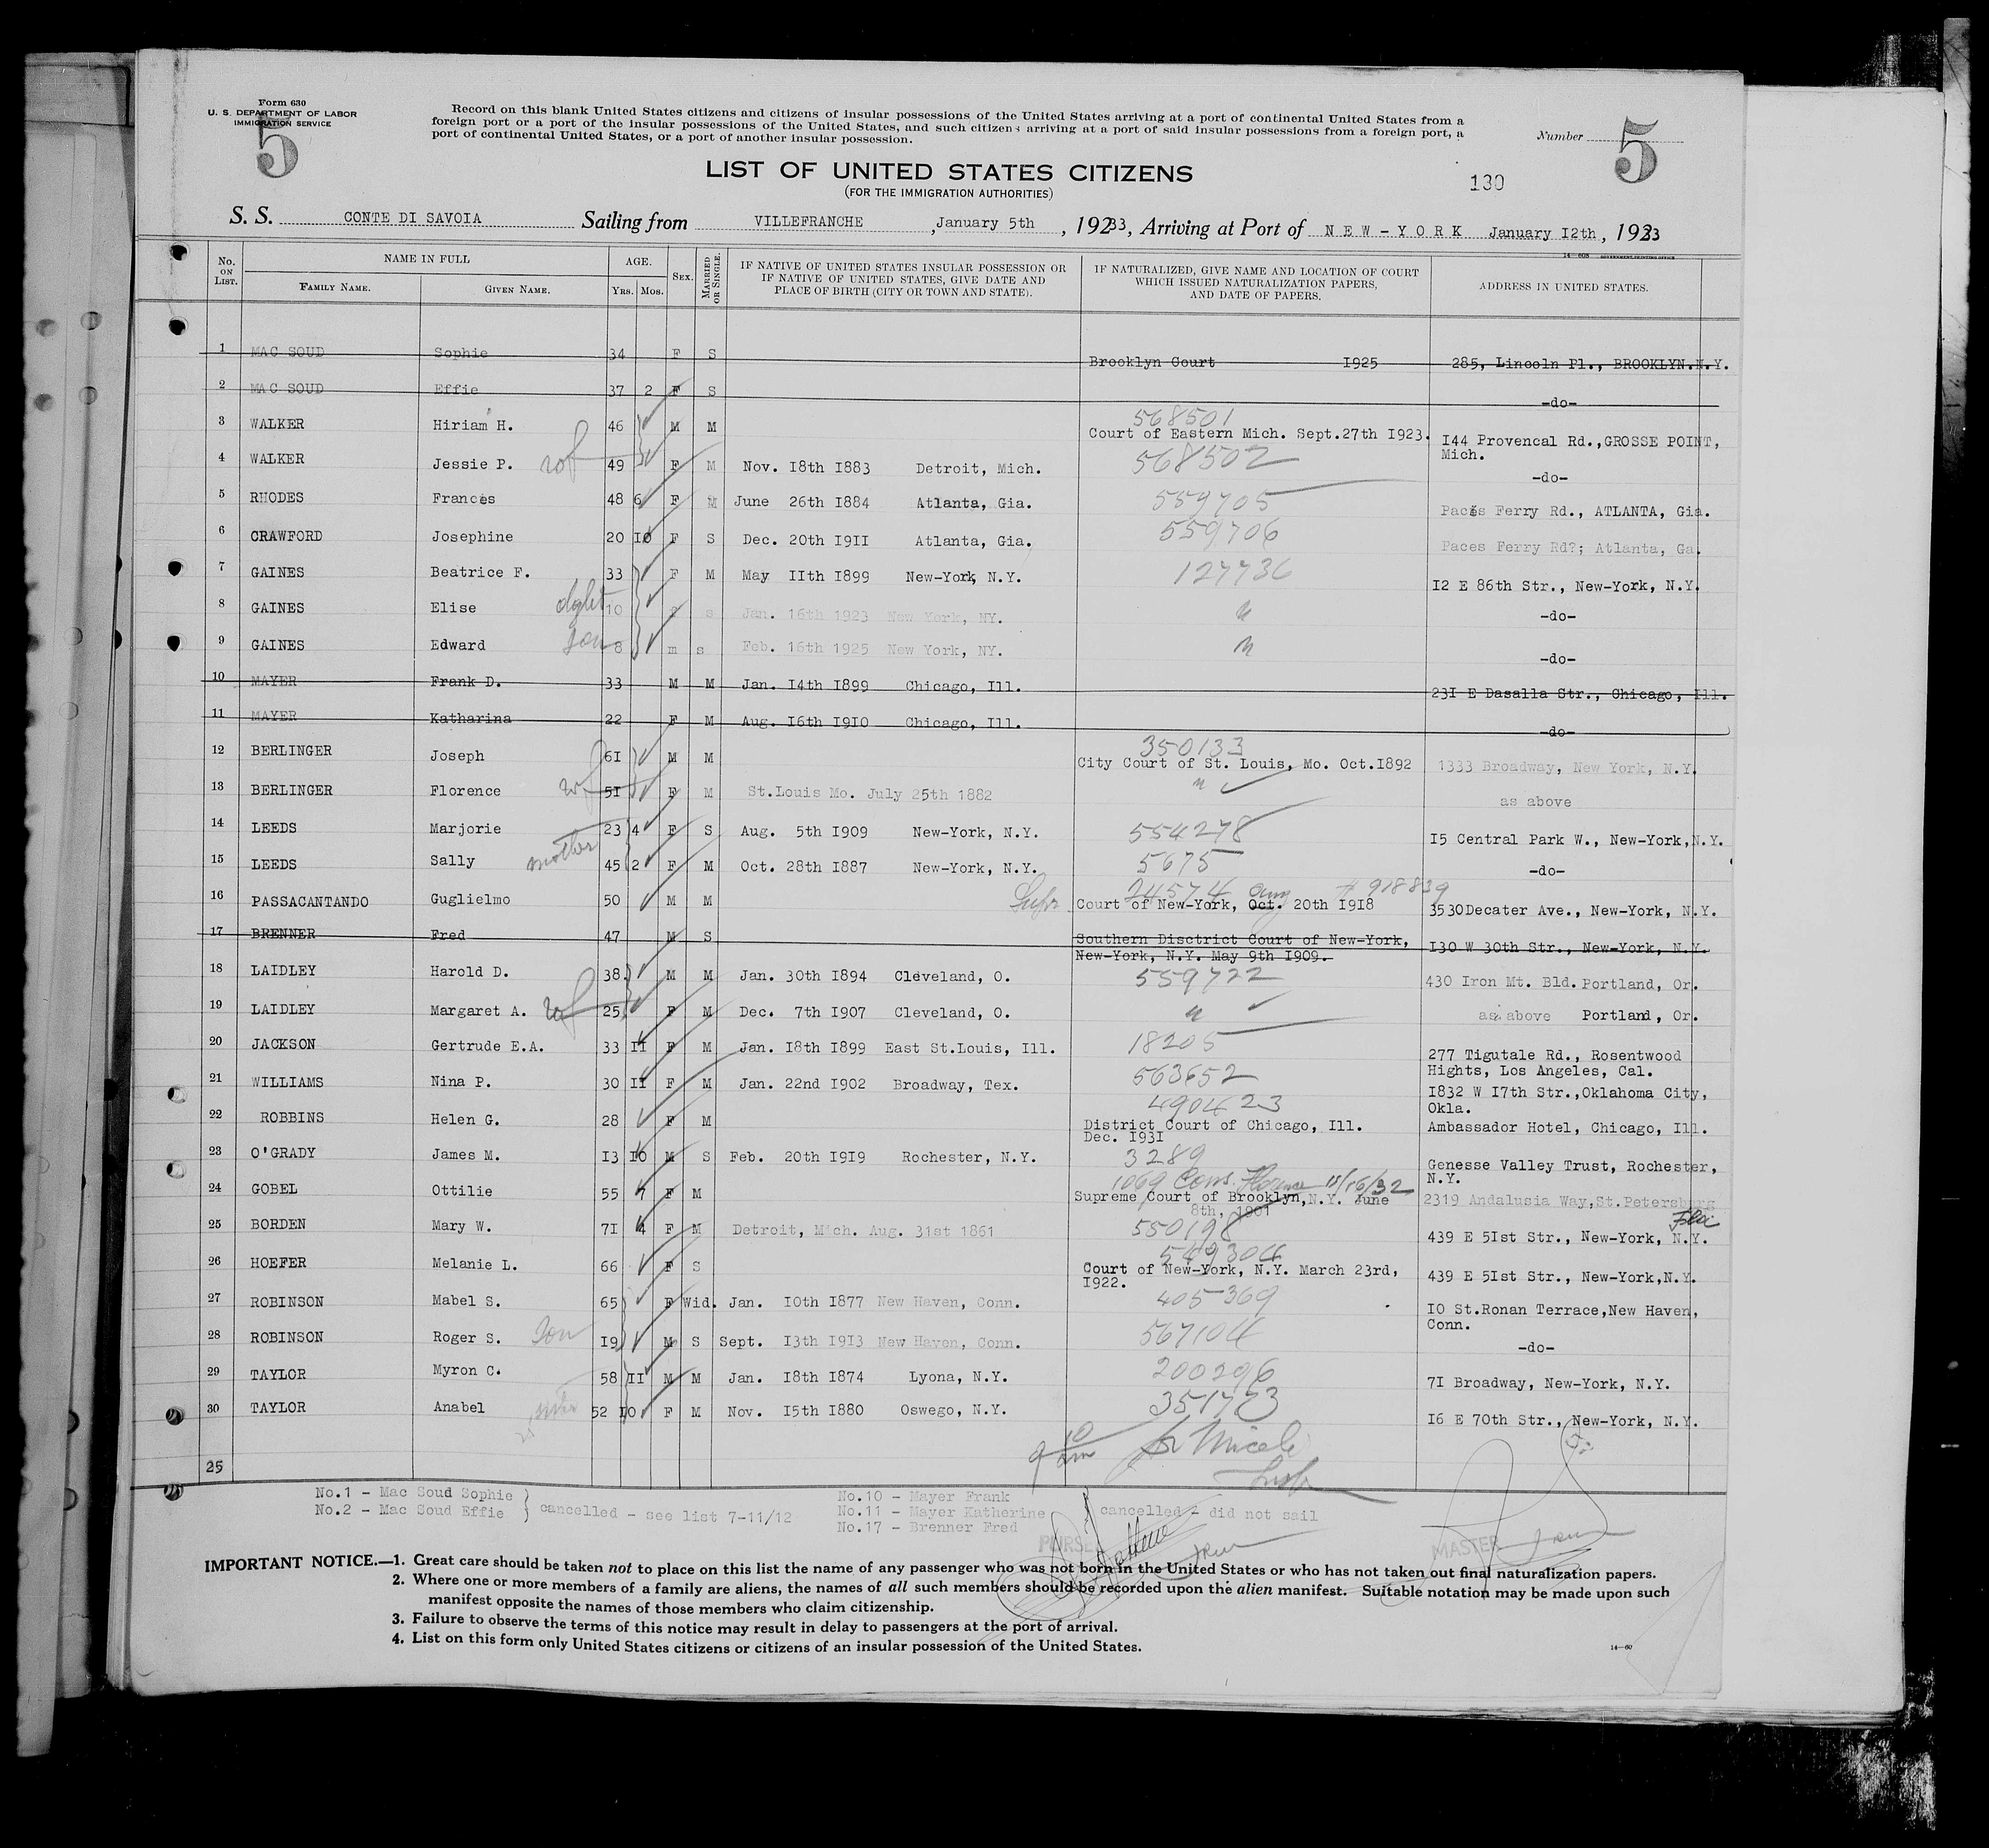 Form 630
U. S. DEPARTMENT OF LABOR
IMMIGRATION SERVICE
5
Record on this blank United States citizens and citizens of insular possessions of the United States arriving at a port of continental United States from a
foreign port or a port of the insular possessions of the United States, and such citizens arriving at a port of said insular possessions from a foreign port, a
port of continental United States, or a port of another insular possession.
Number 5
LIST OF UNITED STATES CITIZENS
(FOR THE IMMIGRATION AUTHORITIES)
130
S. S. CONTE DI SAVOIA Sailing from VILLEFRANCHE , January 5th , 19233, Arriving at Port of NEW-YORK January I2th , 1933
No. ON LIST. NAME IN FULL AGE. SEX. MARRIED OR SINGLE. IF NATIVE OF UNITED STATES INSULAR POSSESSION OR IF NATIVE OF UNITED STATES, GIVE DATE AND PLACE OF BIRTH (CITY OR TOWN AND STATE). IF NATURALIZED, GIVE NAME AND LOCATION OF COURT WHICH ISSUED NATURALIZATION PAPERS, AND DATE OF PAPERS. ADDRESS IN UNITED STATES.
FAMILY NAME. GIVEN NAME. Yrs. Mos.
1 MAC SOUD Sophie 34 F S Brooklyn Court I925 285, Lincoln Pl., BROOKLYN.N.Y.
2 MAC SOUD Effie 37 2 F S -do-
3 WALKER Hiriam H. 46 M M 568501
Court of Eastern Mich. Sept.27th I923. I44 Provencal Rd.,GROSSE POINT,
Mich.
4 WALKER Jessie P. wf 49 F M Nov. I8th I883 Detroit, Mich. 568502 -do-
5 RHODES Frances 48 6 F M June 26th I884 Atlanta, Gia. 559705 Paces Ferry Rd., ATLANTA, Gia.
6 CRAWFORD Josephine 20 I0 F S Dec. 20th I9II Atlanta, Gia. 559706 Paces Ferry Rd?; Atlanta, Ga.
7 GAINES Beatrice F. 33 F M May IIth I899 New-York, N.Y. 127736 I2 E 86th Str., New-York, N.Y.
8 GAINES Elise dght 10 s Jan. 16th 1923 New York, NY. " -do-
9 GAINES Edward son 8 m s Feb. 16th 1925 New York, NY. " -do-
10 MAYER Frank D. 33 M M Jan. I4th I899 Chicago, Ill. 23I E Dasalla Str., Chicago, Ill.
11 MAYER Katharina 22 F M Aug. I6th I9I0 Chicago, Ill. -do-
12 BERLINGER Joseph 6I M M 350133
City Court of St. Louis, Mo. Oct.I892 1333 Broadway, New York, N.Y.
13 BERLINGER Florence wf 5I F M St.Louis Mo. July 25th 1882 " as above
14 LEEDS Marjorie 23 4 F S Aug. 5th I909 New-York, N.Y. 554278 I5 Central Park W., New-York,N.Y.
15 LEEDS Sally mother 45 2 F M Oct. 28th I887 New-York, N.Y. 5675 -do-
16 PASSACANTANDO Guglielmo 50 M M 24574 # 918839
Court of New-York, Oct. 20th I9I8 3530Decater Ave., New-York, N.Y.
17 BRENNER Fred 47 M S Southern Disctrict Court of New-York,
New-York, N.Y. May 9th I909. I30 W 30th Str., New-York, N.Y.
18 LAIDLEY Harold D. 38. M M Jan. 30th I894 Cleveland, O. 559722 430 Iron Mt. Bld. Portland, Or.
19 LAIDLEY Margaret A. wf 25 F M Dec. 7th I907 Cleveland, O. " as above Portland, Or.
20 JACKSON Gertrude E.A. 33 II F M Jan. I8th I899 East St.Louis, Ill. 18205 277 Tigutale Rd., Rosentwood
Hights, Los Angeles, Cal.
21 WILLIAMS Nina P. 30 II F M Jan. 22nd I902 Broadway, Tex. 563652 I832 W I7th Str.,Oklahoma City,
Okla.
22 ROBBINS Helen G. 28 F M 490423
District Court of Chicago, Ill.
Dec. I93I Ambassador Hotel, Chicago, Ill.
23 O'GRADY James M. I3 I0 M S Feb. 20th I9I9 Rochester, N.Y. 3289 Genesse Valley Trust, Rochester,
N.Y.
24 GOBEL Ottilie 55 7 F M 1069 Cons. Florence 11/16/32
Supreme Court of Brooklyn,N.Y. June
8th, 1901 2319 Andalusia Way,St.Petersburg
Fla
25 BORDEN Mary W. 7I 4 F M Detroit, Mich. Aug. 31st 1861 550198 439 E 5Ist Str., New-York, N.Y.
26 HOEFER Melanie L. 66 F S 549304
Court of New-York, N.Y. March 23rd,
I922. 439 E 5Ist Str., New-York,N.Y.
27 ROBINSON Mabel S. 65 F Wid. Jan. I0th I877 New Haven, Conn. 405369 I0 St.Ronan Terrace,New Haven,
Conn.
28 ROBINSON Roger S. Son I9 M S Sept. I3th I9I3 New Haven, Conn. 567104 -do-
29 TAYLOR Myron C. 58 II M M Jan. I8th I874 Lyona, N.Y. 200296 7I Broadway, New-York, N.Y.
30 TAYLOR Anabel wife 52 I0 F M Nov. I5th I880 Oswego, N.Y. 351773 I6 E 70th Str., New-York, N.Y.
25
No.1 - Mac Soud Sophie
No.2 - Mac Soud Effie } cancelled - see list 7-11/12
No.10 - Mayer Frank
No.11 - Mayer Katherine } cancelled - did not sail
No.17 - Brenner Fred
PURSER
MASTER
IMPORTANT NOTICE.—1. Great care should be taken not to place on this list the name of any passenger who was not born in the United States or who has not taken out final naturalization papers.
2. Where one or more members of a family are aliens, the names of all such members should be recorded upon the alien manifest. Suitable notation may be made upon such
manifest opposite the names of those members who claim citizenship.
3. Failure to observe the terms of this notice may result in delay to passengers at the port of arrival.
4. List on this form only United States citizens or citizens of an insular possession of the United States.